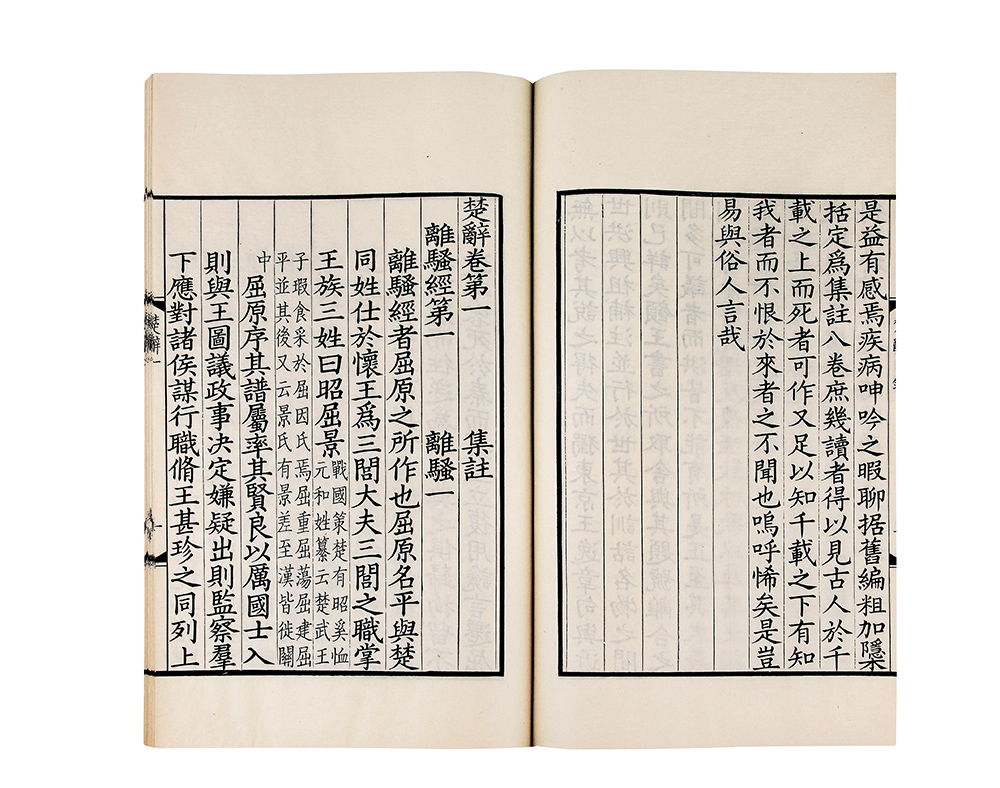 是益有感焉疾病呻吟之暇聊据舊編粗加隱
括定爲集註八卷庶幾讀者得以見古人於千
載之上而死者可作又足以知千載之下有知
我者而不恨於來者之不聞也嗚呼悕矣是豈
易與俗人言哉
楚辭卷第一 集註
離騷經第一 離騷一
離騷經者屈原之所作也屈原名平與楚
同姓仕於懷王爲三閭大夫三閭之職掌
王族三姓曰昭屈景
戰國策楚有昭奚恤
元和姓纂云楚武王
子瑕食采於屈因氏焉屈重屈蕩屈建屈
平並其後又云景氏有景差至漢皆徙關
中
屈原序其譜屬率其賢良以厲國士入
則與王圖議政事决定嫌疑出則監察羣
下應對諸侯謀行職脩王甚珍之同列上
楚辭一